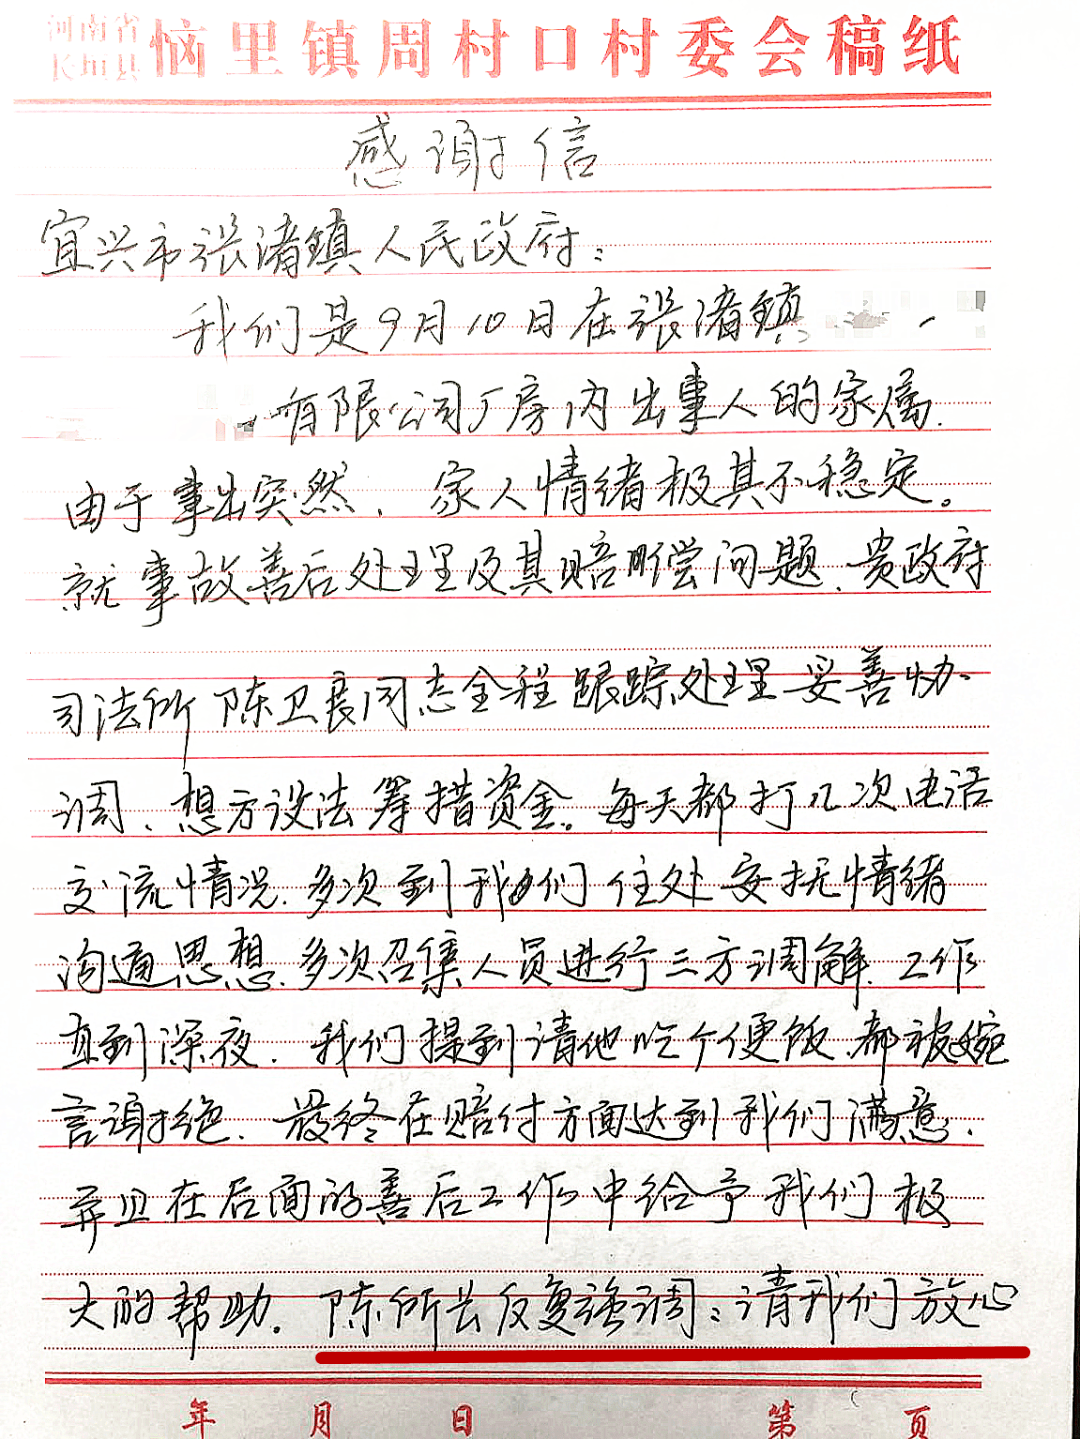 河南省
长垣县
恼里镇周村口村委会稿纸
感谢信
宜兴市张渚镇人民政府：
我们是9月10日在张渚镇
有限公司厂房内出事人的家属.
由于事出突然，家人情绪极其不稳定。
就事故善后处理及其赔偿问题、贵政府
司法所陈卫良同志全程跟踪处理妥善协
调、想方设法筹措资金。每天都打几次电话
交流情况.多次到我们住处安抚情绪
沟通思想.多次召集人员进行三方调解.工作
直到深夜.我们提到请他吃个便饭.都被婉
言谢拒绝.最终在赔付方面达到我们满意.
并且在后面的善后工作中给予我们极
大的帮助.陈所长反复强调：请我们放心
年 月 日 第 页